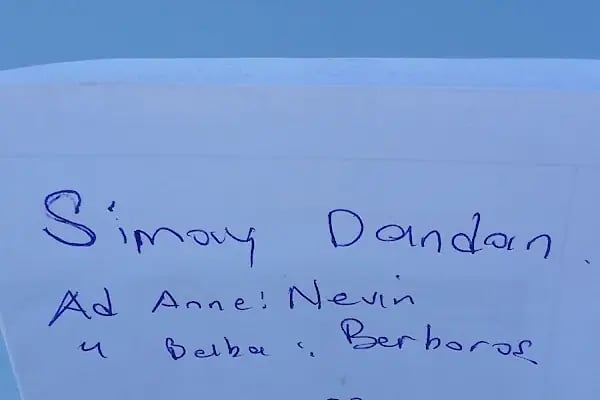 Simay Dandan.
Ad Anne: Nevin
" Baba : Berboros